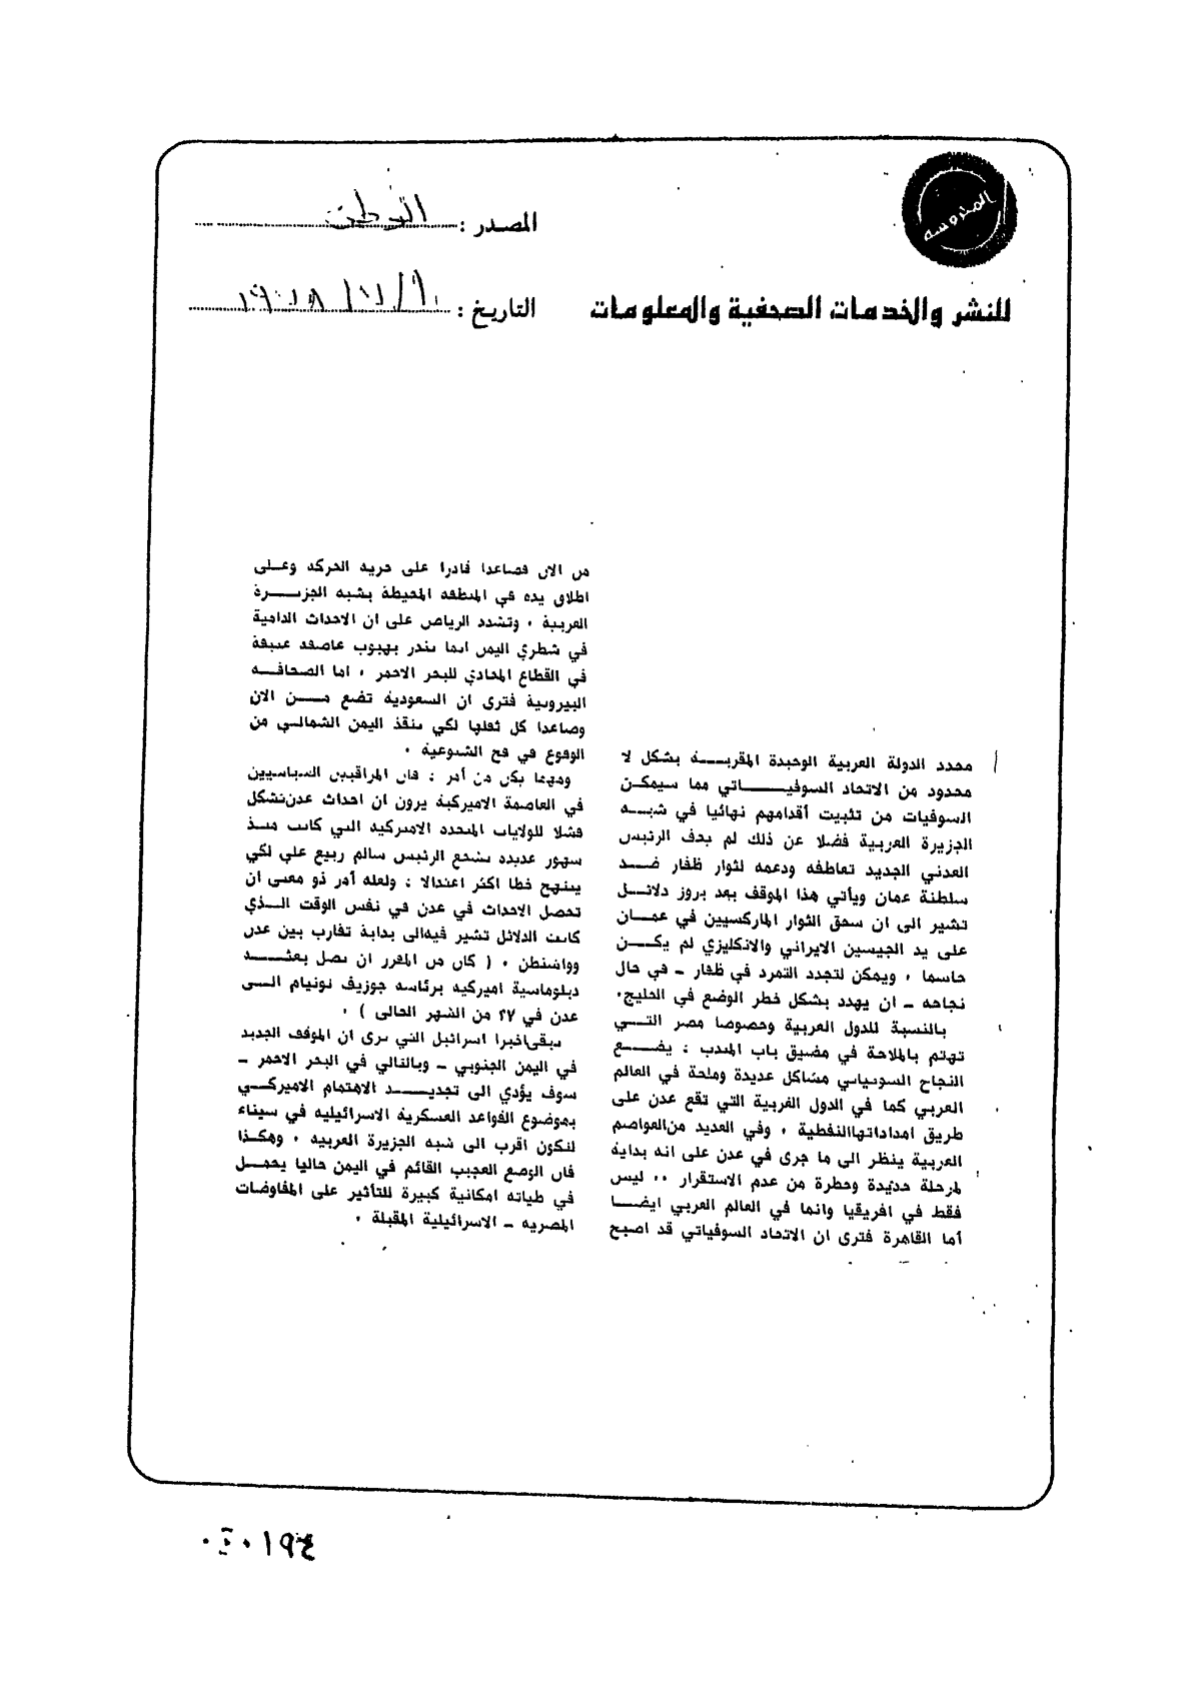 المحروسه
المصدر : الوطن
للنشر والخدمات الصحفية والمعلومات
التاريخ : ١٩٧٨/٧/
محدد الدولة العربية الوحيدة المقربـــه بشكل لا
محدود من الاتحاد السوفيـــــاتي مما سيمكـن
السوفيات من تثبيت أقدامهم نهائيا في شبـــه
الجزيرة العربية فضلا عن ذلك لم يخف الرئيس
العدني الجديد تعاطفه ودعمه لثوار ظفار ضــد
سلطنة عمان ويأتي هذا الموقف بعد بروز دلائــل
تشير الى ان سحق الثوار الماركسيين في عمــان
على يد الجيسين الايراني والانكليزي لم يكـــن
حاسما ، ويمكن لتجدد التمرد في ظفار ــ في حال
نجاحه ــ ان يهدد بشكل خطر الوضع في الخليج.
بالنسبة للدول العربية وخصوصا مصر التـــي
تهتم بالملاحة في مضيق باب المندب : يضـــع
النجاح السوفياتي مشاكل عديدة وملحة في العالم
العربي كما في الدول الغربية التي تقع عدن على
طريق امداداتها النفطية ، وفي العديد من العواصم
العربية ينظر الى ما جرى في عدن على انه بداية
لمرحلة جديدة وخطرة من عدم الاستقرار .. ليس
فقط في افريقيا وانما في العالم العربي ايضـــا
أما القاهرة فترى ان الاتحاد السوفياتي قد اصبح
من الان فصاعدا قادرا على حرية الحركة وعــلى
اطلاق يده في المنطقة المحيطة بشبه الجزيـــرة
العربية ، وتشدد الرياض على ان الاحداث الدامية
في شطري اليمن انما تنذر بهبوب عاصفة عنيفة
في القطاع المحاذي للبحر الاحمر ، اما الصحافـــه
البيروتية فترى ان السعودية تضع مـــن الان
وصاعدا كل ثقلها لكي تنقذ اليمن الشمالــي من
الوقوع في فخ الشيوعية .
ومهما يكن من أمر : فان المراقبين السياسيين
في العاصمة الاميركية يرون ان احداث عدن تشكل
فشلا للولايات المتحدة الاميركية التي كانت منــذ
شهور عديدة تشجع الرئيس سالم ربيع علي لكي
ينتهج خطا اكثر اعتدالا : ولعله أمر ذو معنى ان
تحصل الاحداث في عدن في نفس الوقت الــذي
كانت الدلائل تشير فيه الى بداية تقارب بين عدن
وواشنطن . ( كان من المقرر ان تصل بعثـــة
دبلوماسية اميركيه برئاسه جوزيف تونيام الــى
عدن في ٢٧ من الشهر الحالى ) .
تبقى اخيرا اسرائيل التي ترى ان الموقف الجديد
في اليمن الجنوبي ــ وبالتالي في البحر الاحمر ــ
سوف يؤدي الى تجديـــد الاهتمام الاميركــي
بموضوع القواعد العسكرية الاسرائيليه في سيناء
لتكون اقرب الى شبه الجزيرة العربيه ، وهكـذا
فان الوضع العجيب القائم في اليمن حاليا يحمــل
في طياته امكانية كبيرة للتأثير على المفاوضات
المصريه ــ الاسرائيلية المقبلة .